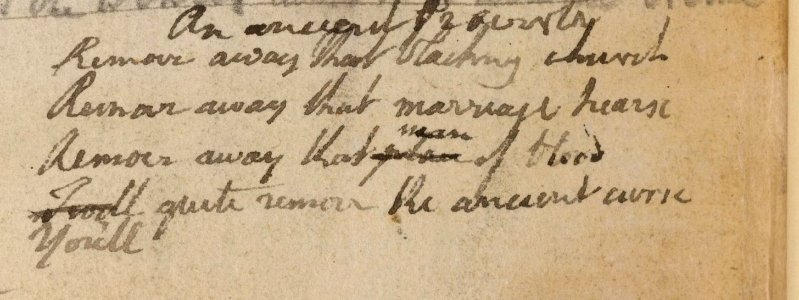 An ancient Proverb
Remove away that blackning church
Remove away that marriage hearse
Remove away that place man of blood
Twill quite remove the ancient curse
You'll